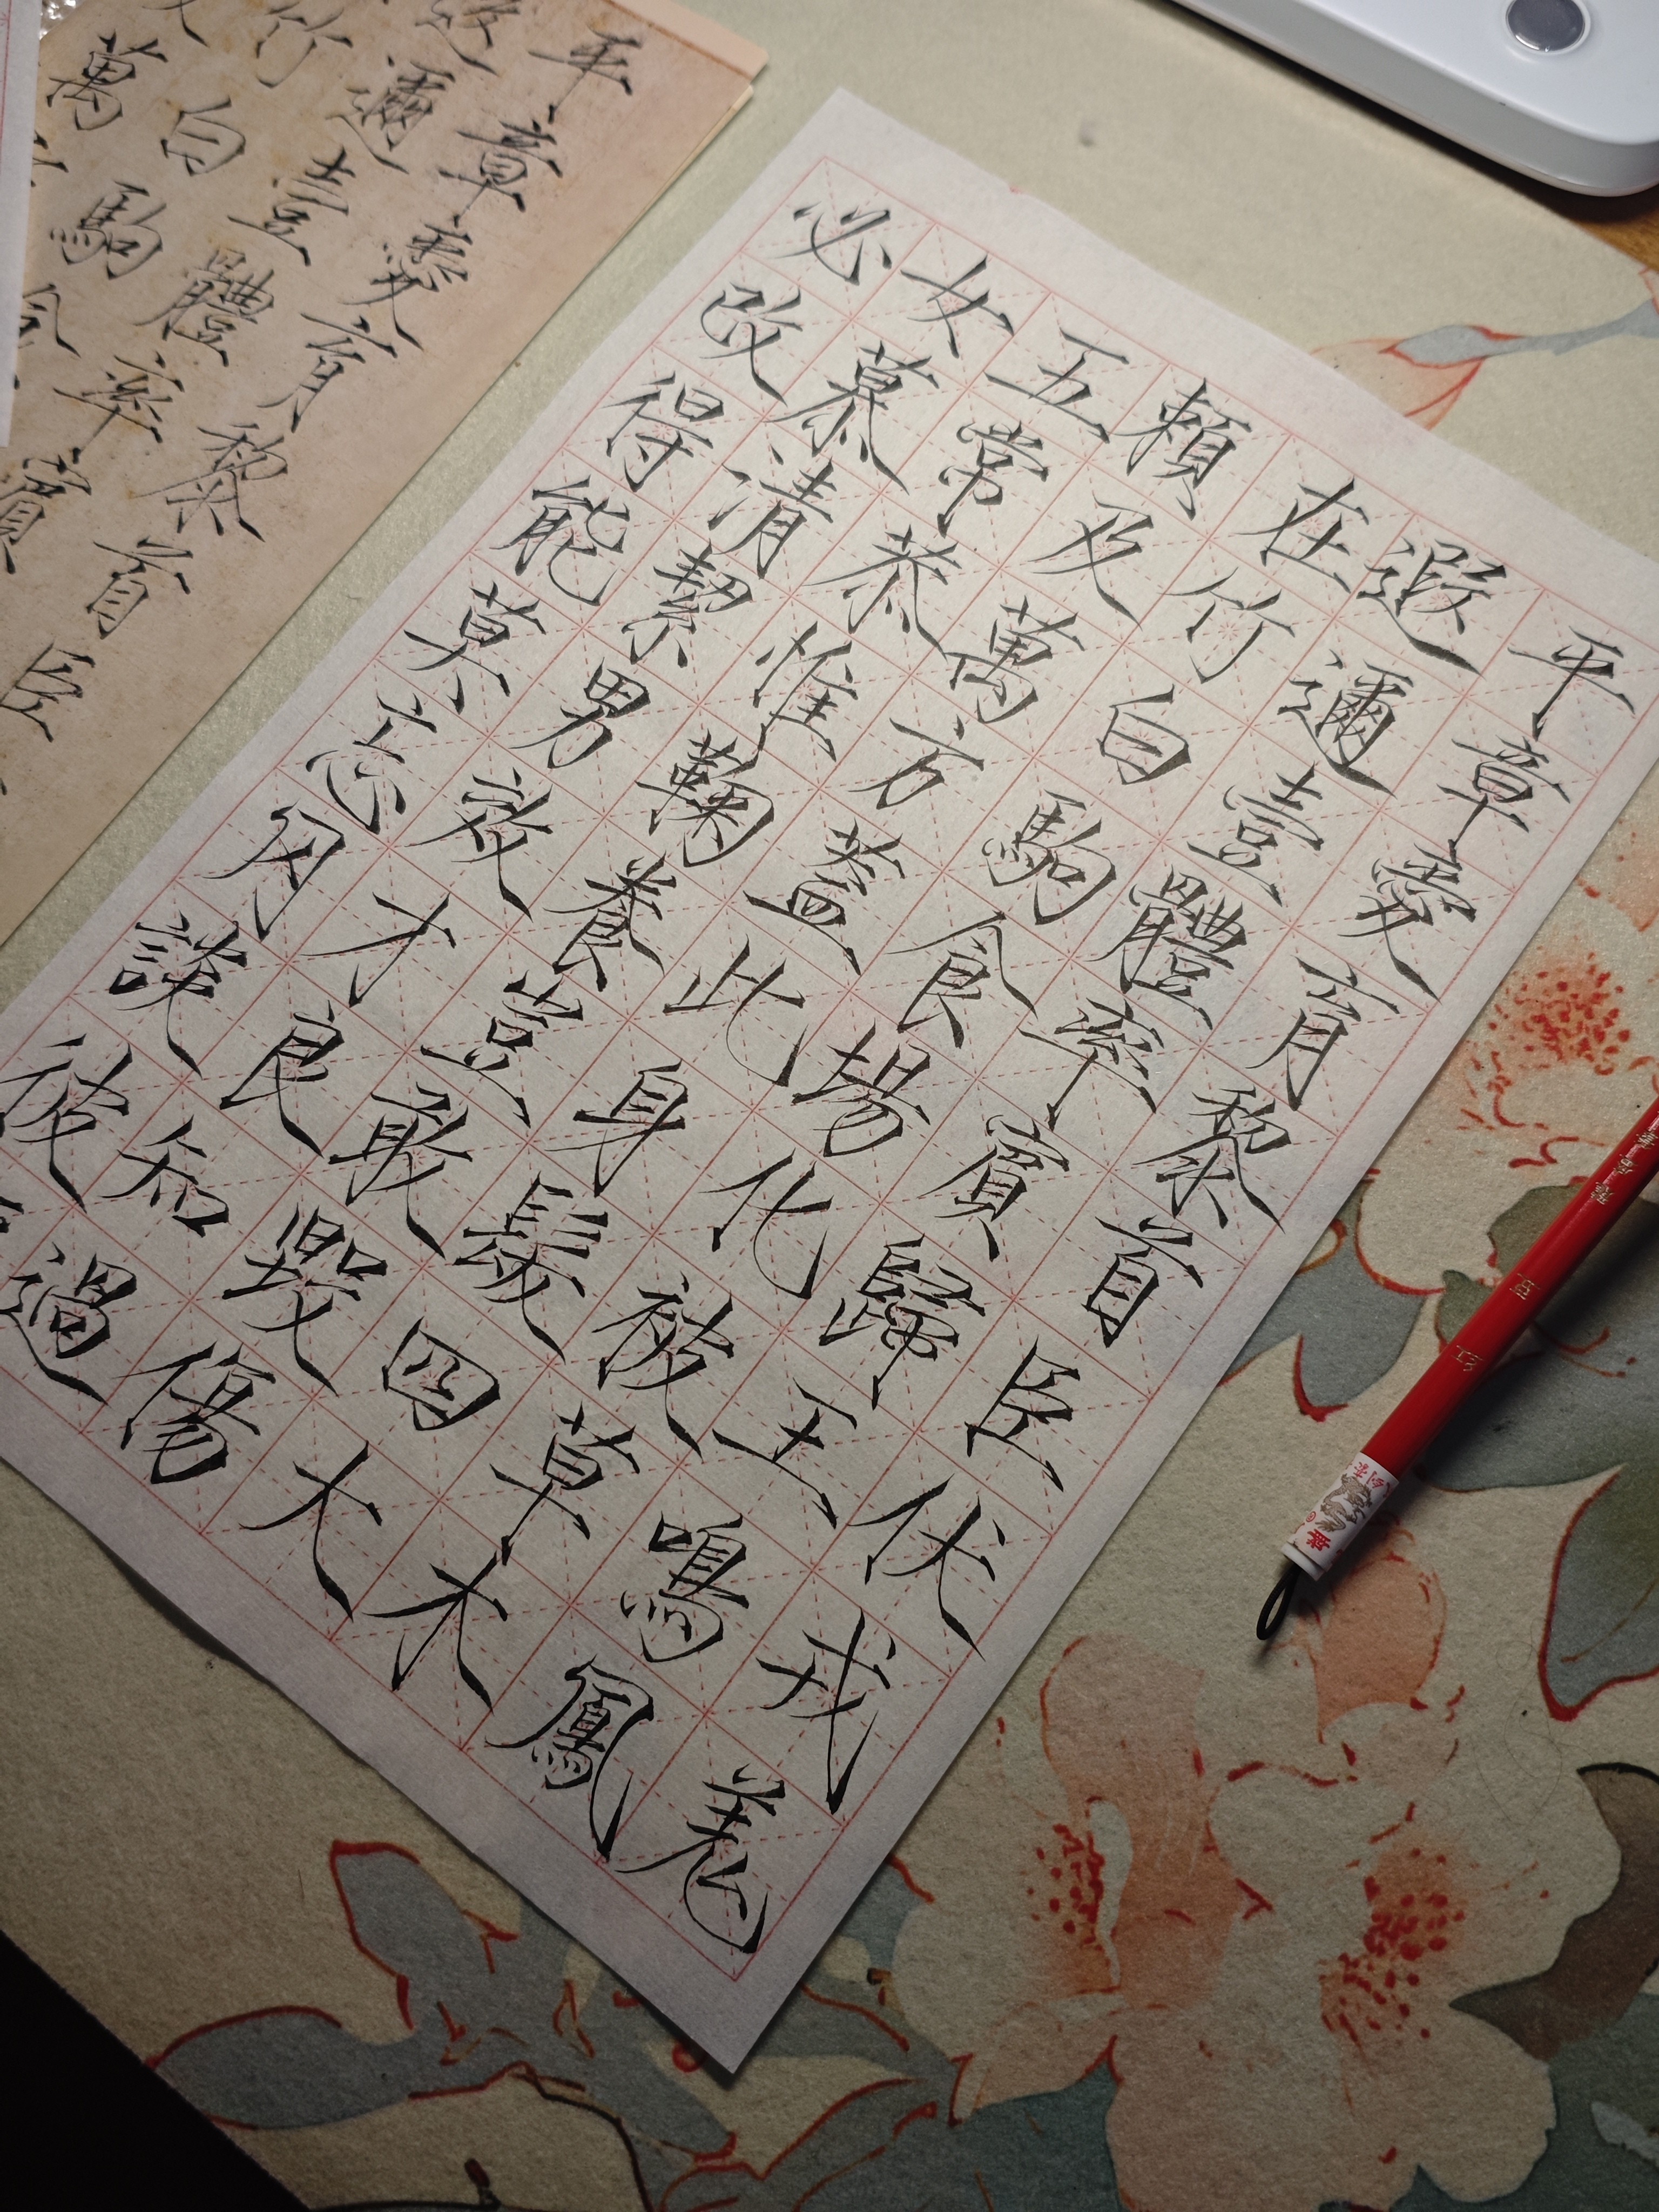 平章愛育黎首臣伏戎羌
遐邇壹體率賓歸王鳴鳳
在竹白駒食場化被草木
賴及萬方蓋此身髮四大
五常恭惟鞠養豈敢毀傷
女慕清絜男效才良知過
必改得能莫忘罔談彼
平章愛育黎首臣
遐邇壹體率賓
竹白駒食
萬